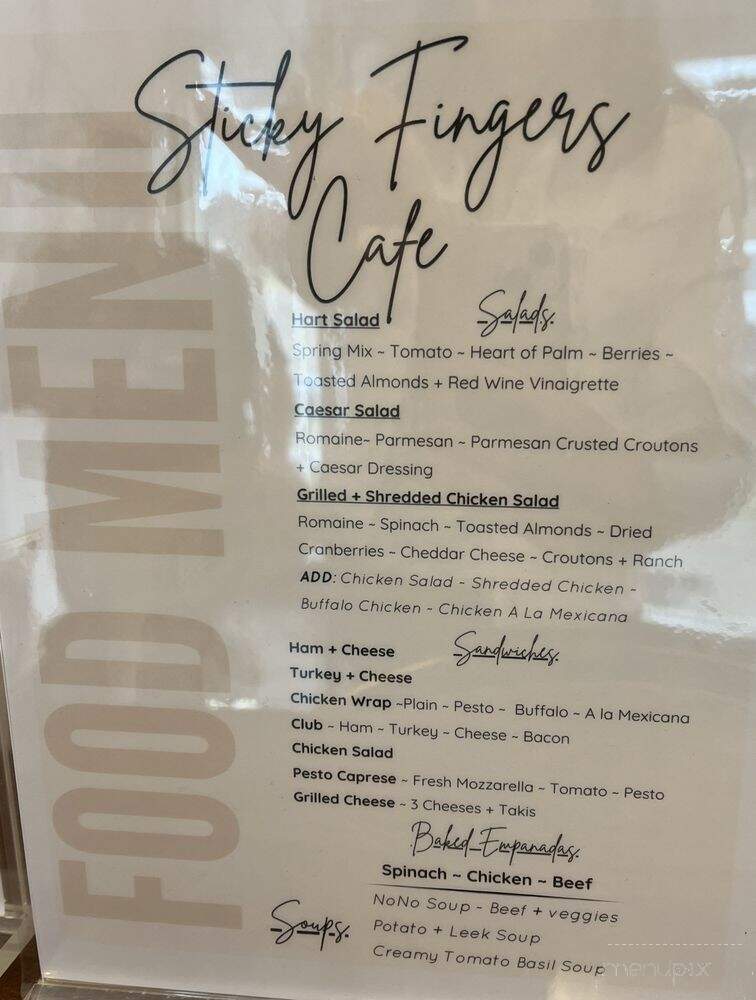 Sticky Fingers
Cafe
FOOD MENU
Salads
Hart Salad
Spring Mix ~ Tomato ~ Heart of Palm ~ Berries ~
Toasted Almonds + Red Wine Vinaigrette
Caesar Salad
Romaine~ Parmesan ~ Parmesan Crusted Croutons
+ Caesar Dressing
Grilled + Shredded Chicken Salad
Romaine ~ Spinach ~ Toasted Almonds ~ Dried
Cranberries ~ Cheddar Cheese ~ Croutons + Ranch
ADD: Chicken Salad - Shredded Chicken -
Buffalo Chicken - Chicken A La Mexicana
Sandwiches
Ham + Cheese
Turkey + Cheese
Chicken Wrap ~Plain ~ Pesto ~ Buffalo ~ A la Mexicana
Club ~ Ham ~ Turkey ~ Cheese ~ Bacon
Chicken Salad
Pesto Caprese ~ Fresh Mozzarella ~ Tomato ~ Pesto
Grilled Cheese ~ 3 Cheeses + Takis
Baked Empanadas
Spinach ~ Chicken ~ Beef
Soups
NoNo Soup - Beef + veggies
Potato + Leek Soup
Creamy Tomato Basil Soup
menupix